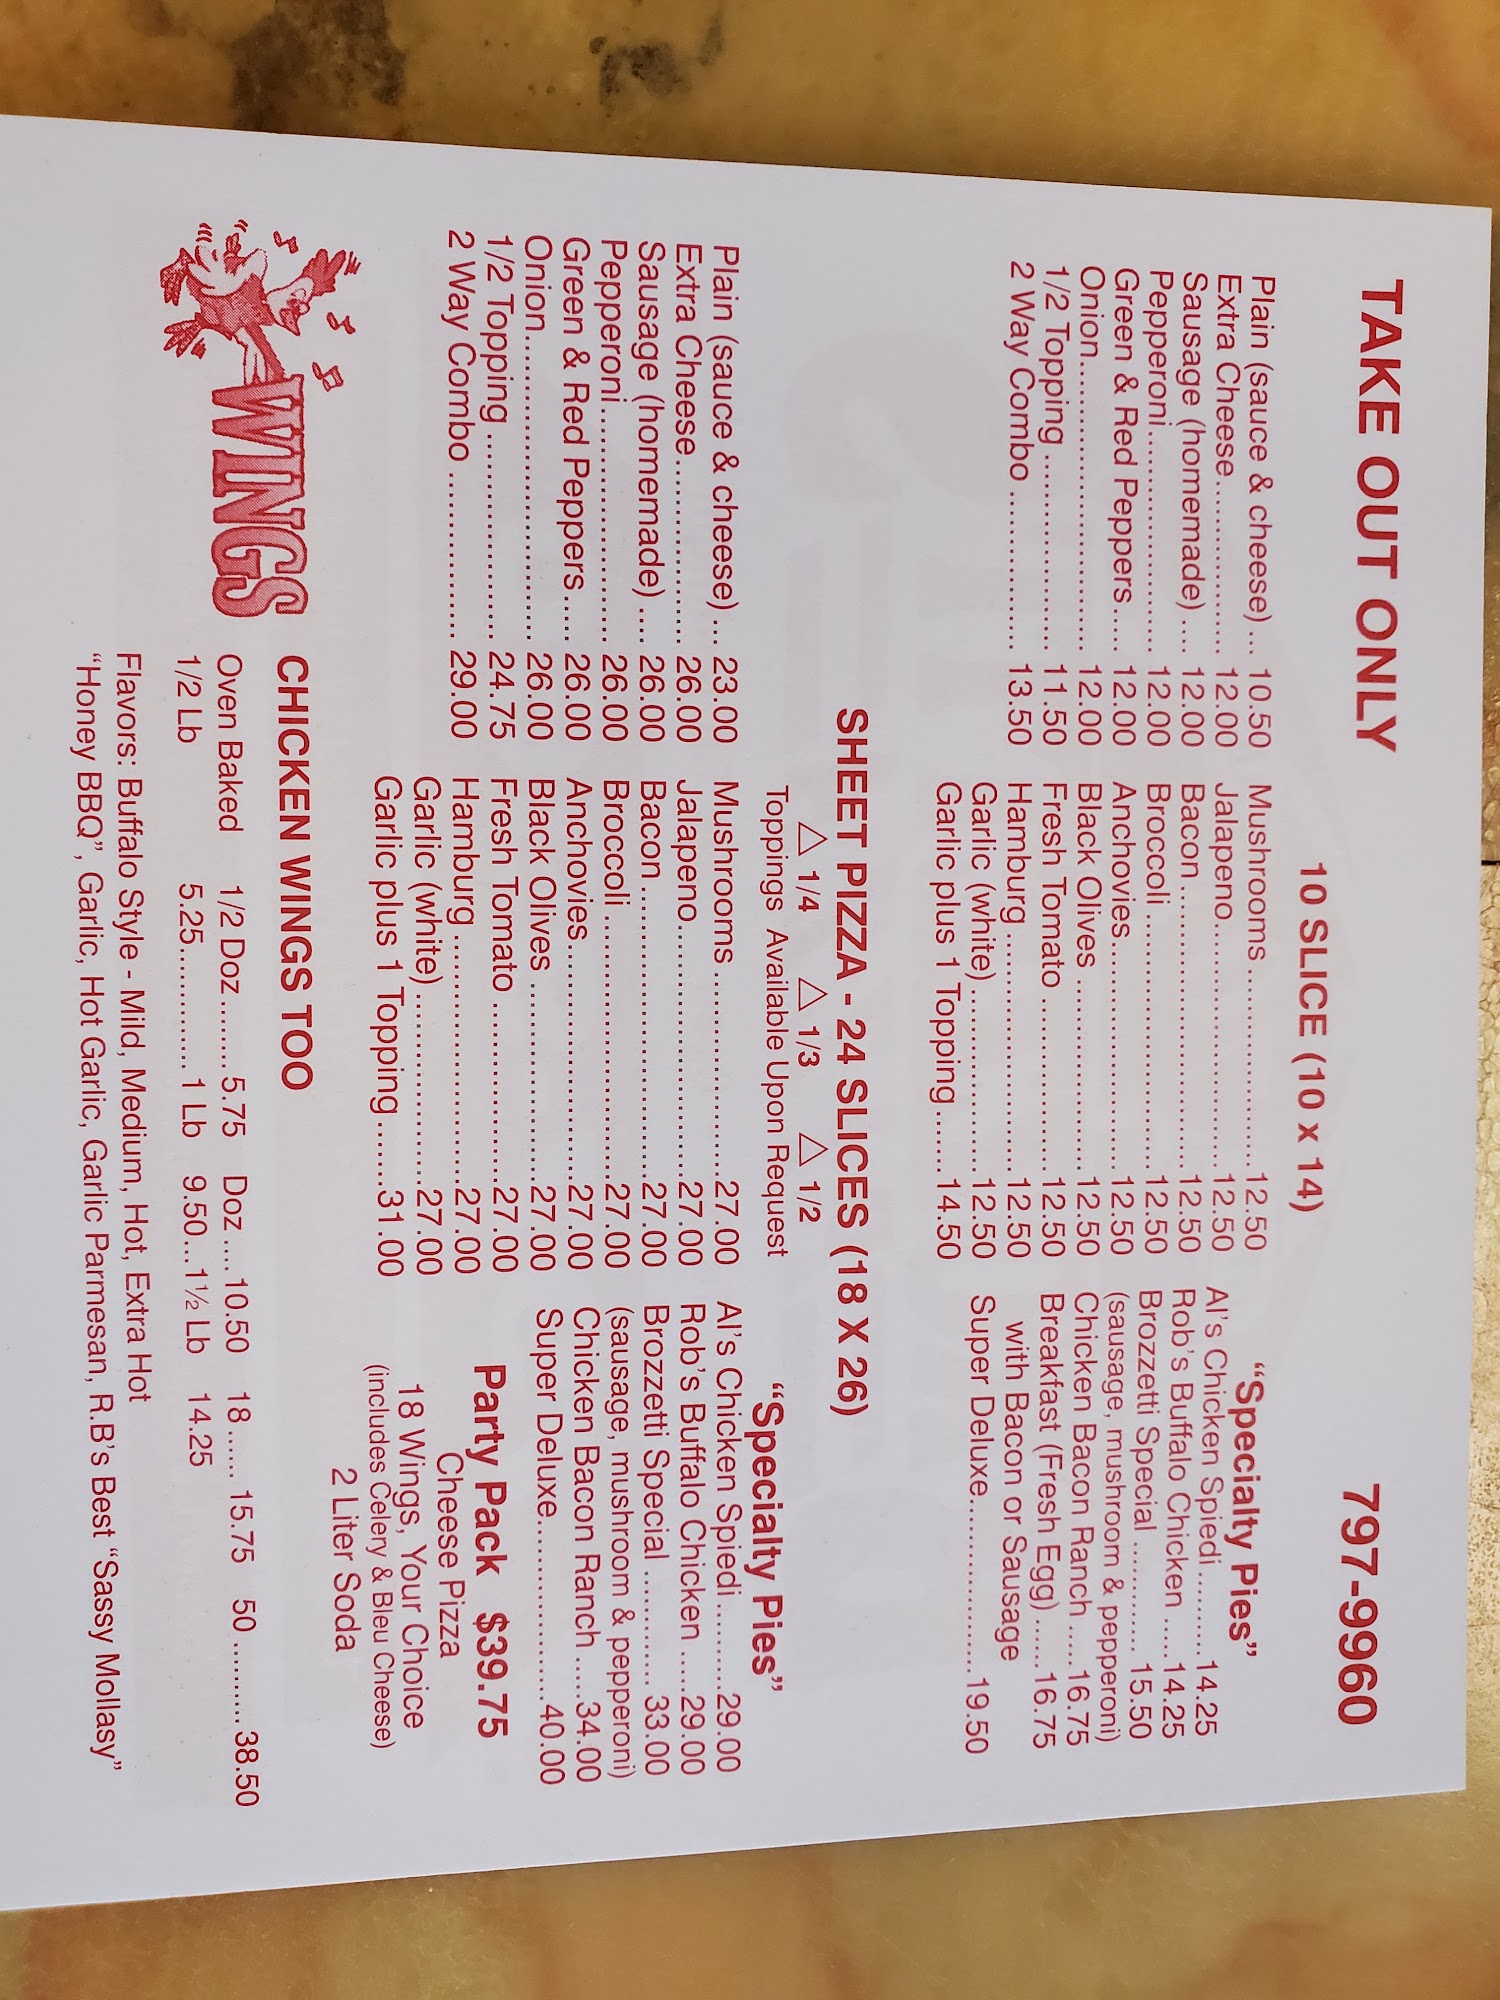 TAKE OUT ONLY 797-9960
10 SLICE (10 x 14)
Plain (sauce & cheese) ... 10.50
Extra Cheese.............. 12.00
Sausage (homemade) .... 12.00
Pepperoni..................... 12.00
Green & Red Peppers .... 12.00
Onion........................... 12.00
1/2 Topping .................. 11.50
2 Way Combo ............... 13.50
Mushrooms ......................12.50
Jalapeno...........................12.50
Bacon ...............................12.50
Broccoli ............................12.50
Anchovies.........................12.50
Black Olives .....................12.50
Fresh Tomato ...................12.50
Hamburg ..........................12.50
Garlic (white).....................12.50
Garlic plus 1 Topping .......14.50
“Specialty Pies”
Al's Chicken Spiedi.........14.25
Rob's Buffalo Chicken .....14.25
Brozzetti Special ............15.50
(sausage, mushroom & pepperoni)
Chicken Bacon Ranch .....16.75
Breakfast (Fresh Egg) ......16.75
with Bacon or Sausage
Super Deluxe..................19.50
SHEET PIZZA - 24 SLICES (18 X 26)
△ 1/4 △ 1/3 △ 1/2
Toppings Available Upon Request
Plain (sauce & cheese) ... 23.00
Extra Cheese................. 26.00
Sausage (homemade) .... 26.00
Pepperoni..................... 26.00
Green & Red Peppers ..... 26.00
Onion........................... 26.00
1/2 Topping .................. 24.75
2 Way Combo ............... 29.00
Mushrooms ......................27.00
Jalapeno...........................27.00
Bacon ...............................27.00
Broccoli ............................27.00
Anchovies.........................27.00
Black Olives .....................27.00
Fresh Tomato ...................27.00
Hamburg ..........................27.00
Garlic (white) ....................27.00
Garlic plus 1 Topping .......31.00
“Specialty Pies”
Al's Chicken Spiedi .........29.00
Rob's Buffalo Chicken ....29.00
Brozzetti Special ............ 33.00
(sausage, mushroom & pepperoni)
Chicken Bacon Ranch .....34.00
Super Deluxe..................40.00
Party Pack $39.75
Cheese Pizza
18 Wings, Your Choice
(includes Celery & Bleu Cheese)
2 Liter Soda
WINGS
CHICKEN WINGS TOO
Oven Baked 1/2 Doz.........5.75 Doz ....10.50 18 ...... 15.75 50 .......... 38.50
1/2 Lb 5.25..............1 Lb 9.50...1½ Lb 14.25
Flavors: Buffalo Style - Mild, Medium, Hot, Extra Hot
“Honey BBQ”, Garlic, Hot Garlic, Garlic Parmesan, R.B's Best “Sassy Mollasy”